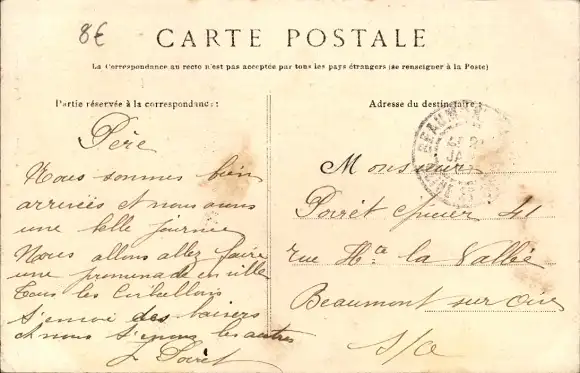 8€
CARTE POSTALE
La Correspondance au recto n'est pas acceptée par tous les pays étrangers (se renseigner à la Poste)
Partie réservée à la correspondance :
Père
Nous sommes bien
arrivées et nous avons
une belle journée
Nous allons allez faire
une promenade en ville
Tous les
s'envoi des baisers
et nous les autres
Poiret
Adresse du destinataire :
BEAUM
Monsieur
Poiret 41
rue Hte la Vallée
Beaumont sur Oise
S/O